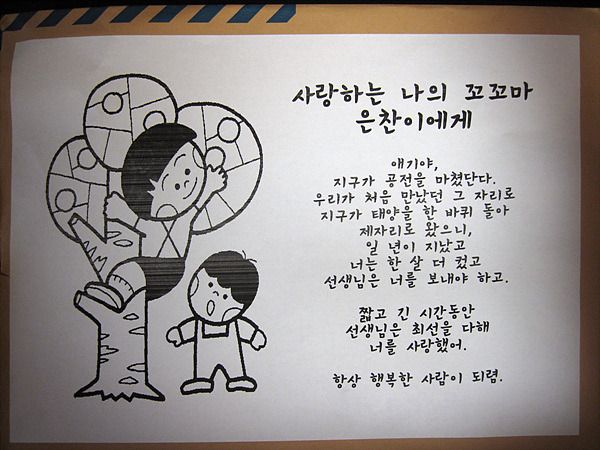 사랑하는 나의 꼬꼬마
은찬이에게
얘기야,
지구가 공전을 마쳤단다.
우리가 처음 만났던 그 자리로
지구가 태양을 한 바퀴 돌아
제자리로 왔으니,
일 년이 지났고
너는 한 살 더 컸고
선생님은 너를 보내야 하고.
짧고 긴 시간동안
선생님은 최선을 다해
너를 사랑했어.
항상 행복한 사람이 되렴.